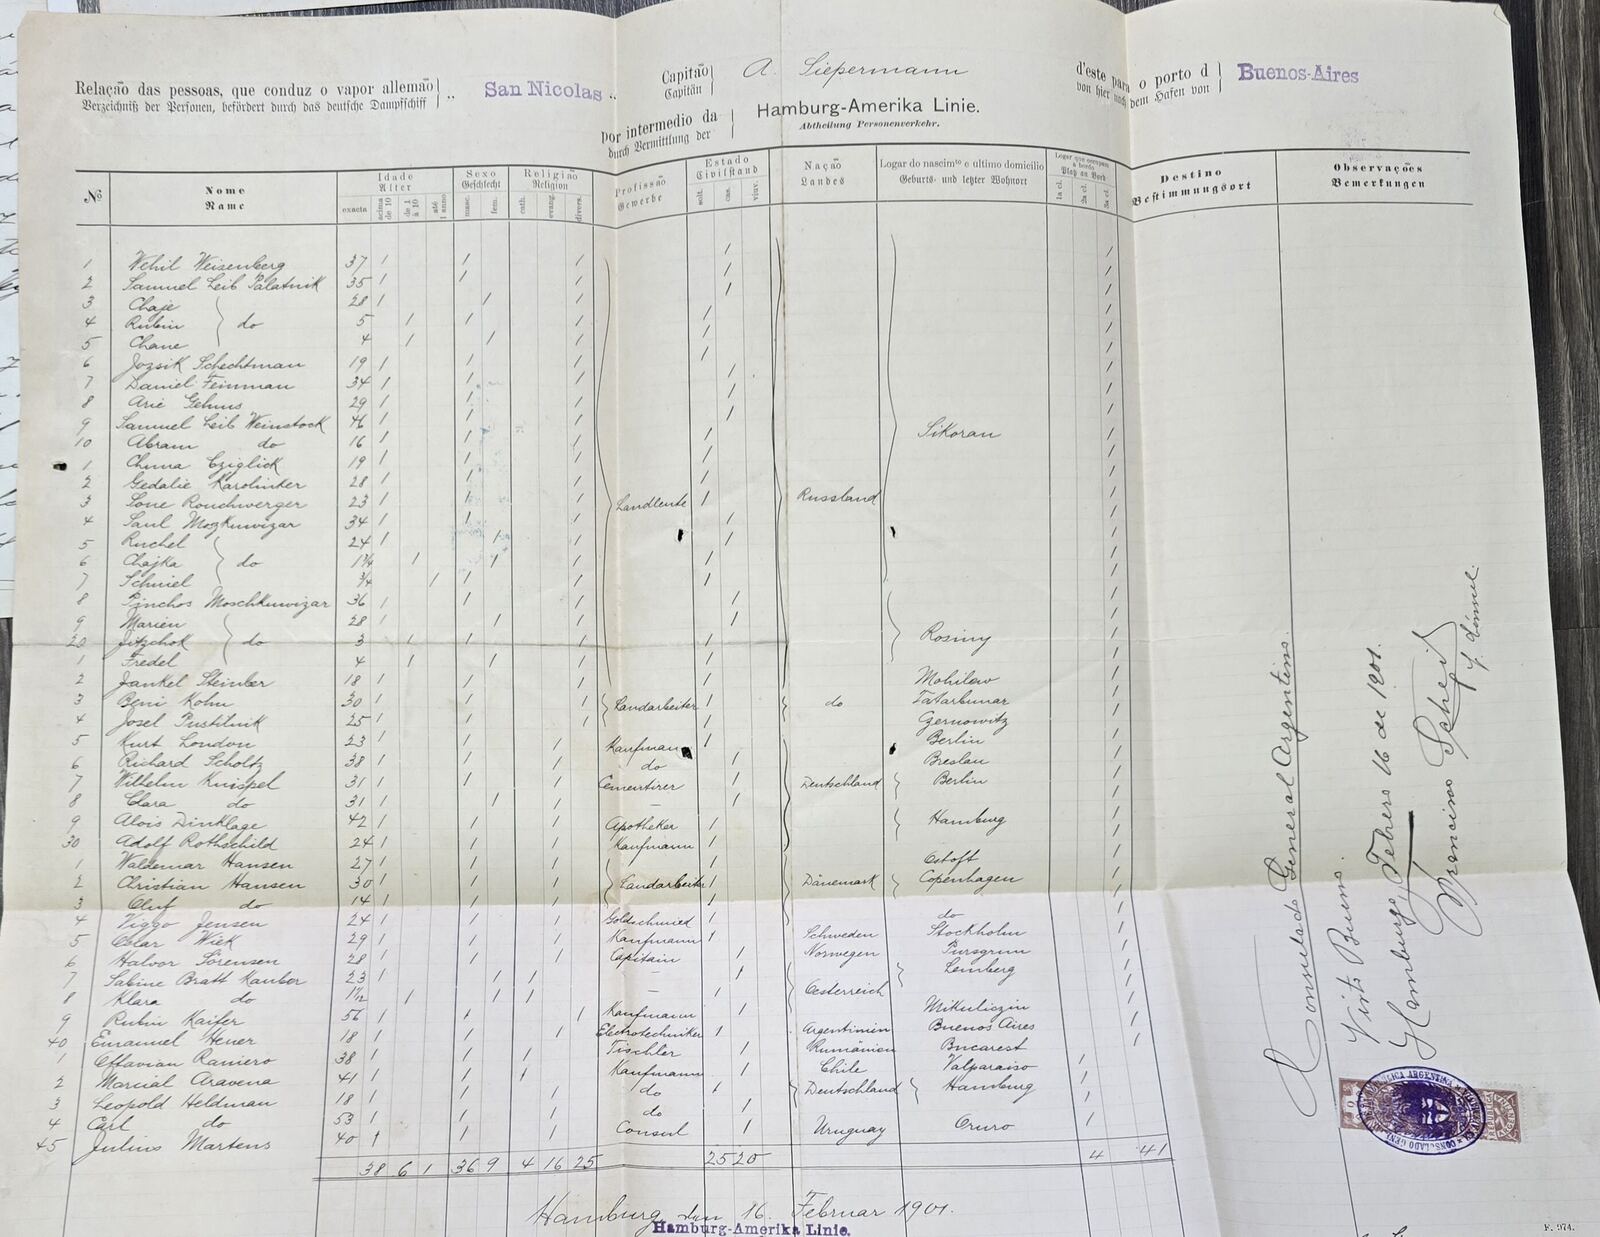 Relação das pessoas, que conduz o vapor allemão .. San Nicolas .. Capitão A. Siepermann d'este para o porto d Buenos-Aires
Verzeichniß der Personen, befördert durch das deutsche Dampfschiff Capitän von hier nach dem Hafen von
Por intermedio da Hamburg-Amerika Linie.
durch Vermittlung der Abtheilung Personenverkehr.
Nº Nome Idade Sexo Religião Profissão Estado Nação Logar do nascimto e ultimo domicilio Logar que occupam à bordo Destino Observações
Name Alter Geschlecht Religion Gewerbe Civilstand Landes Geburts- und letzter Wohnort Platz an Bord Bestimmungsort Bemerkungen
exacta acima de 10 de 1 à 10 até 1 anno masc. fem. cath. evang. divers. solt. cas. viuv. 1a cl. 2a cl. 3a cl.
1 Wehil Weisenberg 37 / / / / /
2 Samuel Leib Palatnik 35 / / / / /
3 Chaje 28 / / / / /
4 Rubin } do 5 / / / / /
5 Chane 4 / / / / /
6 Jozsik Schechtman 19 / / / / /
7 Daniel Feinman 34 / / / / /
8 Arie 29 / / / / /
9 Samuel Leib Weinstock 46 / / / / /
10 Abram do 16 / / / / / Sikoran
1 Chuna Cziglick 19 / / / / /
2 Gedalie Karolinker 28 / / / / /
3 Sone Rouchwerger 23 / / / Landleute / Russland /
4 Saul Moszkuwizar 34 / / / / /
5 Ruchel 24 / / / / /
6 Chajka } do 1¾ / / / / /
7 Schmiel ¾ / / / / /
8 Pinchos Moschkuwizar 36 / / / / /
9 Marien 28 / / / / /
20 Jitzchok } do 3 / / / / Rosiny /
1 Fredel 4 / / / / /
2 Jankel Steinber 18 / / / / Mohilow /
3 Beni Kohn 30 / / / Landarbeiter / do Tatarbunar /
4 Josel Pustilnik 25 / / / / Czernowitz /
5 Kurt London 23 / / / Kaufmann / Berlin /
6 Richard Scholtz 38 / / / do / Breslau /
7 Wilhelm Knispel 31 / / / Cementirer / Deutschland Berlin /
8 Clara do 31 / / / – / /
9 Alois Dinklage 42 / / / Apotheker / Hamburg /
30 Adolf Rothschild 24 / / / Kaufmann / /
1 Waldemar Hansen 27 / / / / /
2 Christian Hansen 30 / / / Landarbeiter / Dänemark Copenhagen /
3 Oluf do 14 / / / / /
4 Viggo Jensen 24 / / / Goldschmied / do /
5 Oscar Wiek 29 / / / Kaufmann / Schweden Stockholm /
6 Halvor Sörensen 28 / / / Capitain / Norwegen Porsgrun /
7 Sabine Bratt Kauber 23 / / / – / Lemberg /
8 Klara do 1 1/12 / / / – / Oesterreich /
9 Rubin Kaifer 56 / / / Kaufmann / Mikuliczin /
40 Emanuel Heuer 18 / / / Electrotechniker / Argentinien Buenos Aires /
1 Ottavian Raniero 38 / / / Tischler / Rumänien Bucarest /
2 Marcial Aravena 41 / / / Kaufmann / Chile Valparaiso /
3 Leopold Heldman 18 / / / do / Deutschland Hamburg /
4 Carl do 53 / / / do / /
45 Julius Martens 40 / / / Consul / Uruguay Oruro /
38 6 1 36 9 4 16 25 25 20 4 41
Hamburg, den 16. Februar 1901.
Hamburg-Amerika Linie.
Consulado General Argentino.
Visto Bueno.
Hamburgo, Febrero 16 de 1901.
Francisco
REPUBLICA ARGENTINA
CONSULADO GENERAL
F. 974.